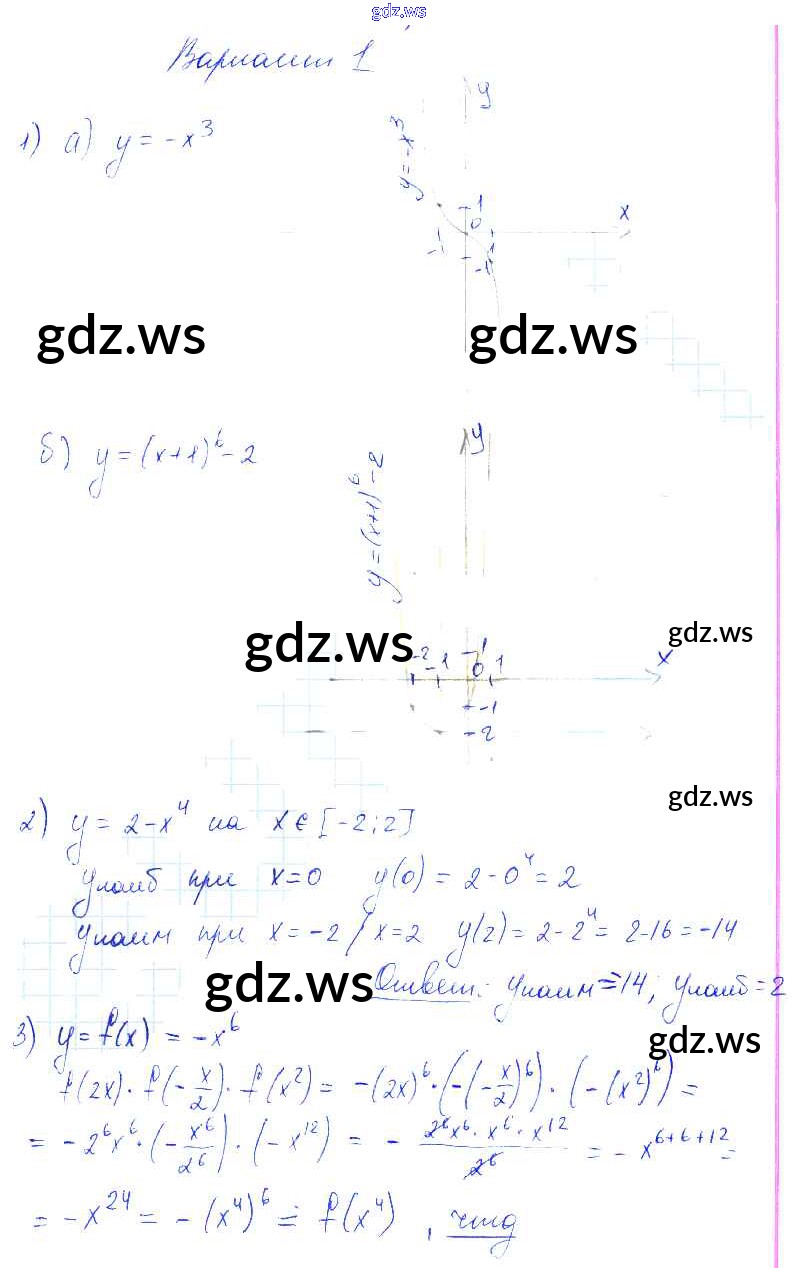 gdz.ws
Вариант 1
1) а) y = -x³
y
y = -x³
1
0
x
-1
1
-1
gdz.ws
gdz.ws
б) y = (x+1)⁶ - 2
y
y = (x+1)⁶ - 2
gdz.ws
gdz.ws
-2 -1 1 0 1 x
-1
-2
gdz.ws
2) y = 2 - x⁴ на x ∈ [-2; 2]
yнаиб при x = 0 y(0) = 2 - 0⁴ = 2
yнаим при x = -2 / x = 2 y(2) = 2 - 2⁴ = 2 - 16 = -14
gdz.ws
Ответ: yнаим = -14; yнаиб = 2
3) y = f(x) = -x⁶
gdz.ws
f(2x) · f(-x/2) · f(x²) = -(2x)⁶ · (-(-x/2)⁶) · (-(x²)⁶) =
= -2⁶x⁶ · (-x⁶/2⁶) · (-x¹²) = - 2⁶x⁶ · x⁶ · x¹² / 2⁶ = -x⁶⁺⁶⁺¹² =
= -x²⁴ = -(x⁴)⁶ = f(x⁴), чтд